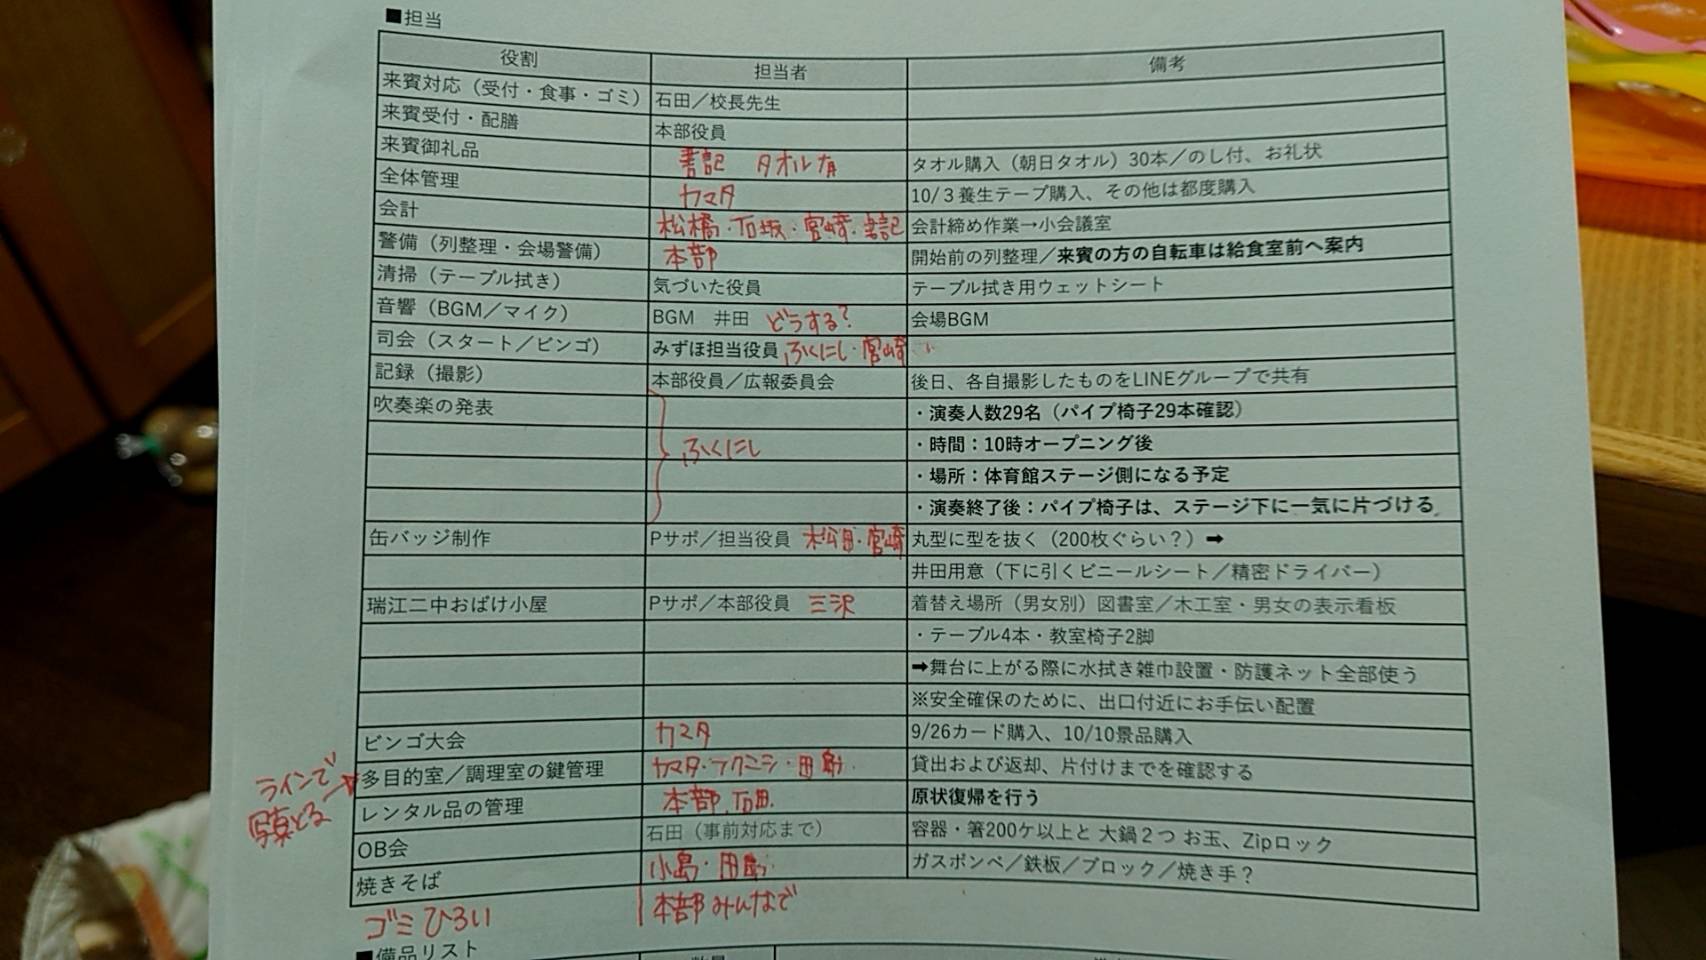 ■担当
役割 担当者 備考
来賓対応（受付・食事・ゴミ） 石田／校長先生
来賓受付・配膳 本部役員
来賓御礼品 書記 タオル有 タオル購入（朝日タオル）30本／のし付、お礼状
全体管理 カマタ 10/３養生テープ購入、その他は都度購入
会計 松橋・石坂・宮崎・書記 会計締め作業→小会議室
警備（列整理・会場警備） 本部 開始前の列整理／来賓の方の自転車は給食室前へ案内
清掃（テーブル拭き） 気づいた役員 テーブル拭き用ウェットシート
音響（BGM／マイク） BGM 井田 どうする？ 会場BGM
司会（スタート／ビンゴ） みずほ担当役員 ふくにし・宮崎
記録（撮影） 本部役員／広報委員会 後日、各自撮影したものをLINEグループで共有
吹奏楽の発表 ・演奏人数29名（パイプ椅子29本確認）
ふくにし ・時間：10時オープニング後
・場所：体育館ステージ側になる予定
・演奏終了後：パイプ椅子は、ステージ下に一気に片づける
缶バッジ制作 Pサポ／担当役員 松田・宮崎 丸型に型を抜く（200枚ぐらい？）➡
井田用意（下に引くビニールシート／精密ドライバー）
瑞江二中おばけ小屋 Pサポ／本部役員 三沢 着替え場所（男女別）図書室／木工室・男女の表示看板
・テーブル4本・教室椅子2脚
➡舞台に上がる際に水拭き雑巾設置・防護ネット全部使う
※安全確保のために、出口付近にお手伝い配置
ビンゴ大会 カマタ 9/26カード購入、10/10景品購入
ラインで写真とる→
多目的室／調理室の鍵管理 カマタ・フクニシ・田島 貸出および返却、片付けまでを確認する
レンタル品の管理 本部 石田 原状復帰を行う
OB会 石田（事前対応まで） 容器・箸200ケ以上と 大鍋２つ お玉、Zipロック
焼きそば 小島・田島 ガスボンベ／鉄板／ブロック／焼き手？
ゴミひろい 本部みんなで
■備品リスト
数量